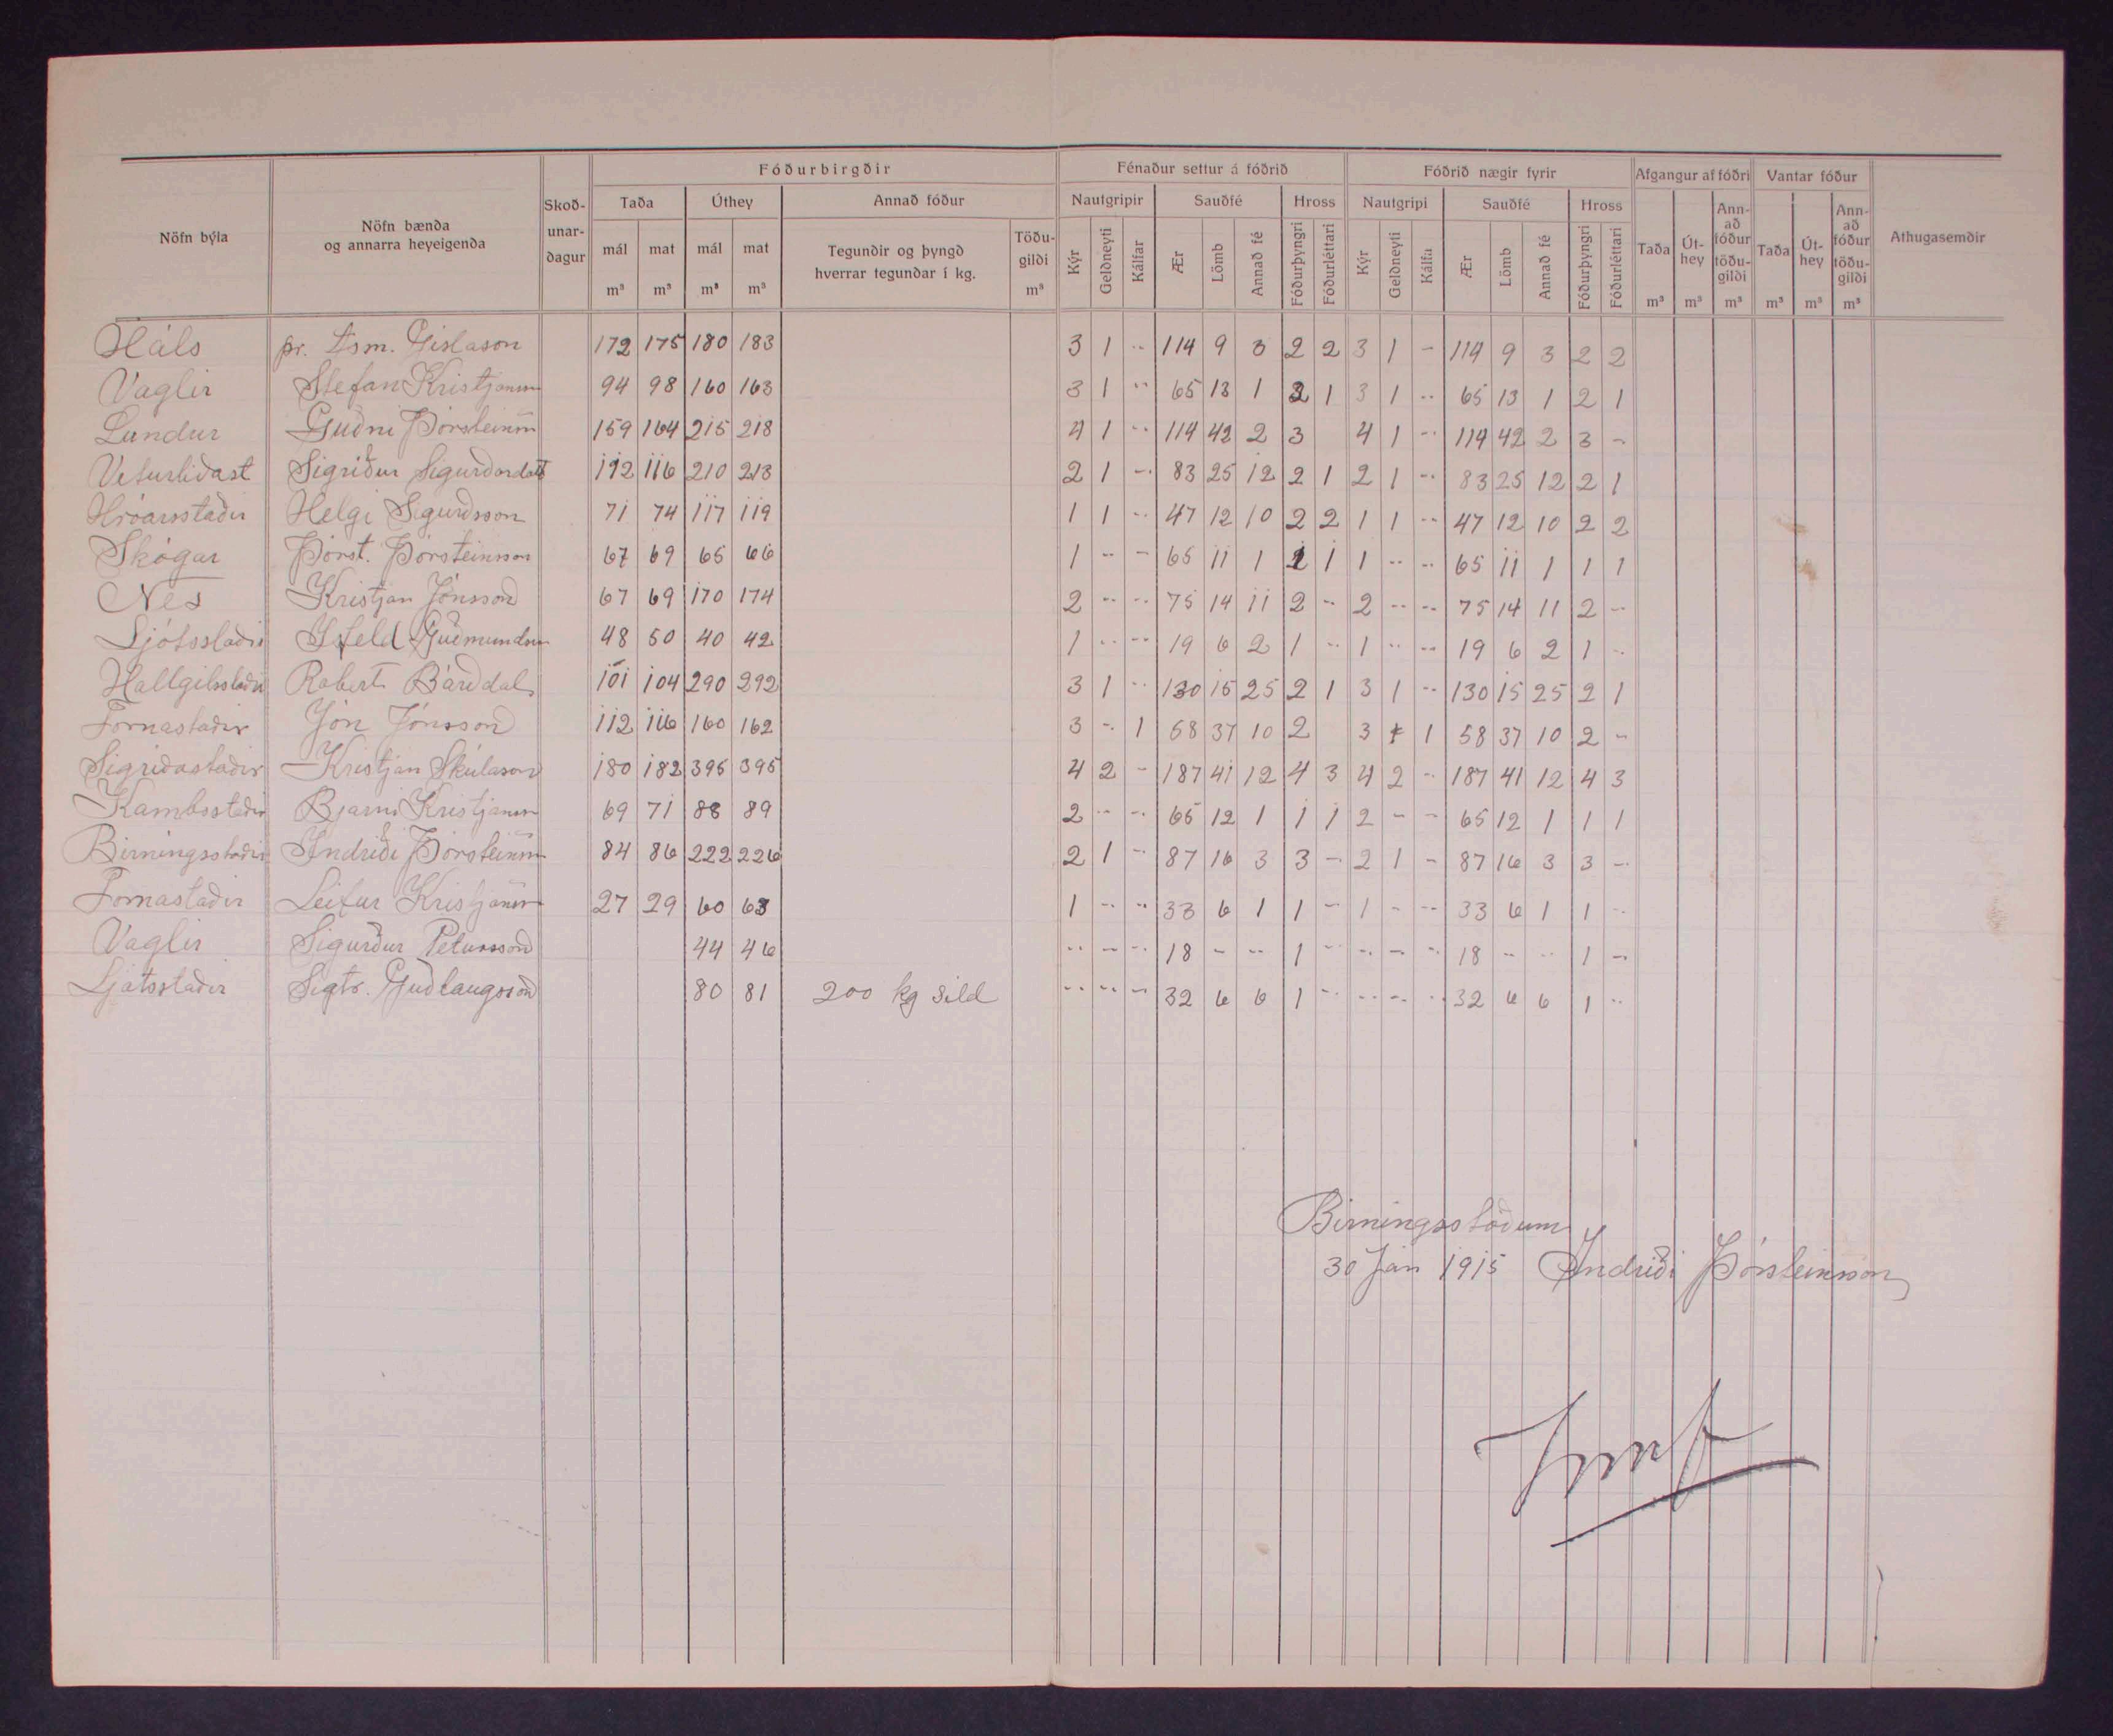 Fóðurbirgðir Fénaður settur á fóðrið Fóðrið nægir fyrir Afgangur af fóðri Vantar fóður
Nöfn býla Nöfn bænda og annarra heyeigenda Skoð-unar-dagur Taða Úthey Annað fóður Nautgripir Sauðfé Hross Nautgripi Sauðfé Hross Taða Út-hey Ann-að fóður töðu-gildi Taða Út-hey Ann-að fóður töðu-gildi Athugasemdir
mál mat mál mat Tegundir og þyngd hverrar tegundar í kg. Töðu-gildi Kýr Geldneyti Kálfar Ær Lömb Annað fé Fóðurþyngri Fóðurléttari Kýr Geldneyti Kálfa Ær Lömb Annað fé Fóðurþyngri Fóðurléttari
m³ m³ m³ m³ m³ m³ m³ m³ m³ m³ m³
Háls pr. Ásm. Gíslason 172 175 180 183 3 1 - 114 9 3 2 2 3 1 - 114 9 3 2 2
Vaglir Stefan Kristjansson 94 98 160 163 3 1 - 65 13 1 2 1 3 1 - 65 13 1 2 1
Lundur Guðni Þorsteinsson 159 164 215 218 4 1 - 114 42 2 3 4 1 - 114 42 2 3 -
Veturliðast Sigríður Sigurðardott 112 116 210 213 2 1 - 83 25 12 2 1 2 1 - 83 25 12 2 1
Hróarsstaðir Helgi Sigurðsson 71 74 117 119 1 1 - 47 12 10 2 2 1 1 - 47 12 10 2 2
Skógar Þórst. Þorsteinsson 67 69 65 66 1 - - 65 11 1 1 1 1 - - 65 11 1 1 1
Nes Kristjan Jónsson 67 69 170 174 2 - - 75 14 11 2 - 2 - - 75 14 11 2 -
Ljótsstaðir Ísfeld Guðmundsson 48 50 40 42 1 - - 19 6 2 1 - 1 - - 19 6 2 1 -
Hallgilsstaðir Robert Bárðdal 101 104 290 292 3 1 - 130 15 25 2 1 3 1 - 130 15 25 2 1
Fornastaðir Jón Jónsson 112 116 160 162 3 - 1 58 37 10 2 3 1 58 37 10 2 -
Sigriðastaðir Kristjan Skúlason 180 182 395 395 4 2 - 187 41 12 4 3 4 2 - 187 41 12 4 3
Kambsstaðir Bjarni Kristjansson 69 71 88 89 2 - - 65 12 1 1 1 2 - - 65 12 1 1 1
Birningsstaðir Indriði Þorsteinsson 84 86 222 226 2 1 - 87 16 3 3 - 2 1 - 87 16 3 3 -
Fornastaðir Leifur Kristjánsson 27 29 60 63 1 - - 33 6 1 1 - 1 - - 33 6 1 1 -
Vaglir Sigurður Petursson 44 46 - - - 18 - - 1 - - - - 18 - - 1 -
Ljótsstaðir Sigtr. Guðlaugsson 80 81 200 kg síld - - - 32 6 6 1 - - - - 32 6 6 1 -
Birningsstöðum
30 Jan 1915 Indriði Þórsteinsson